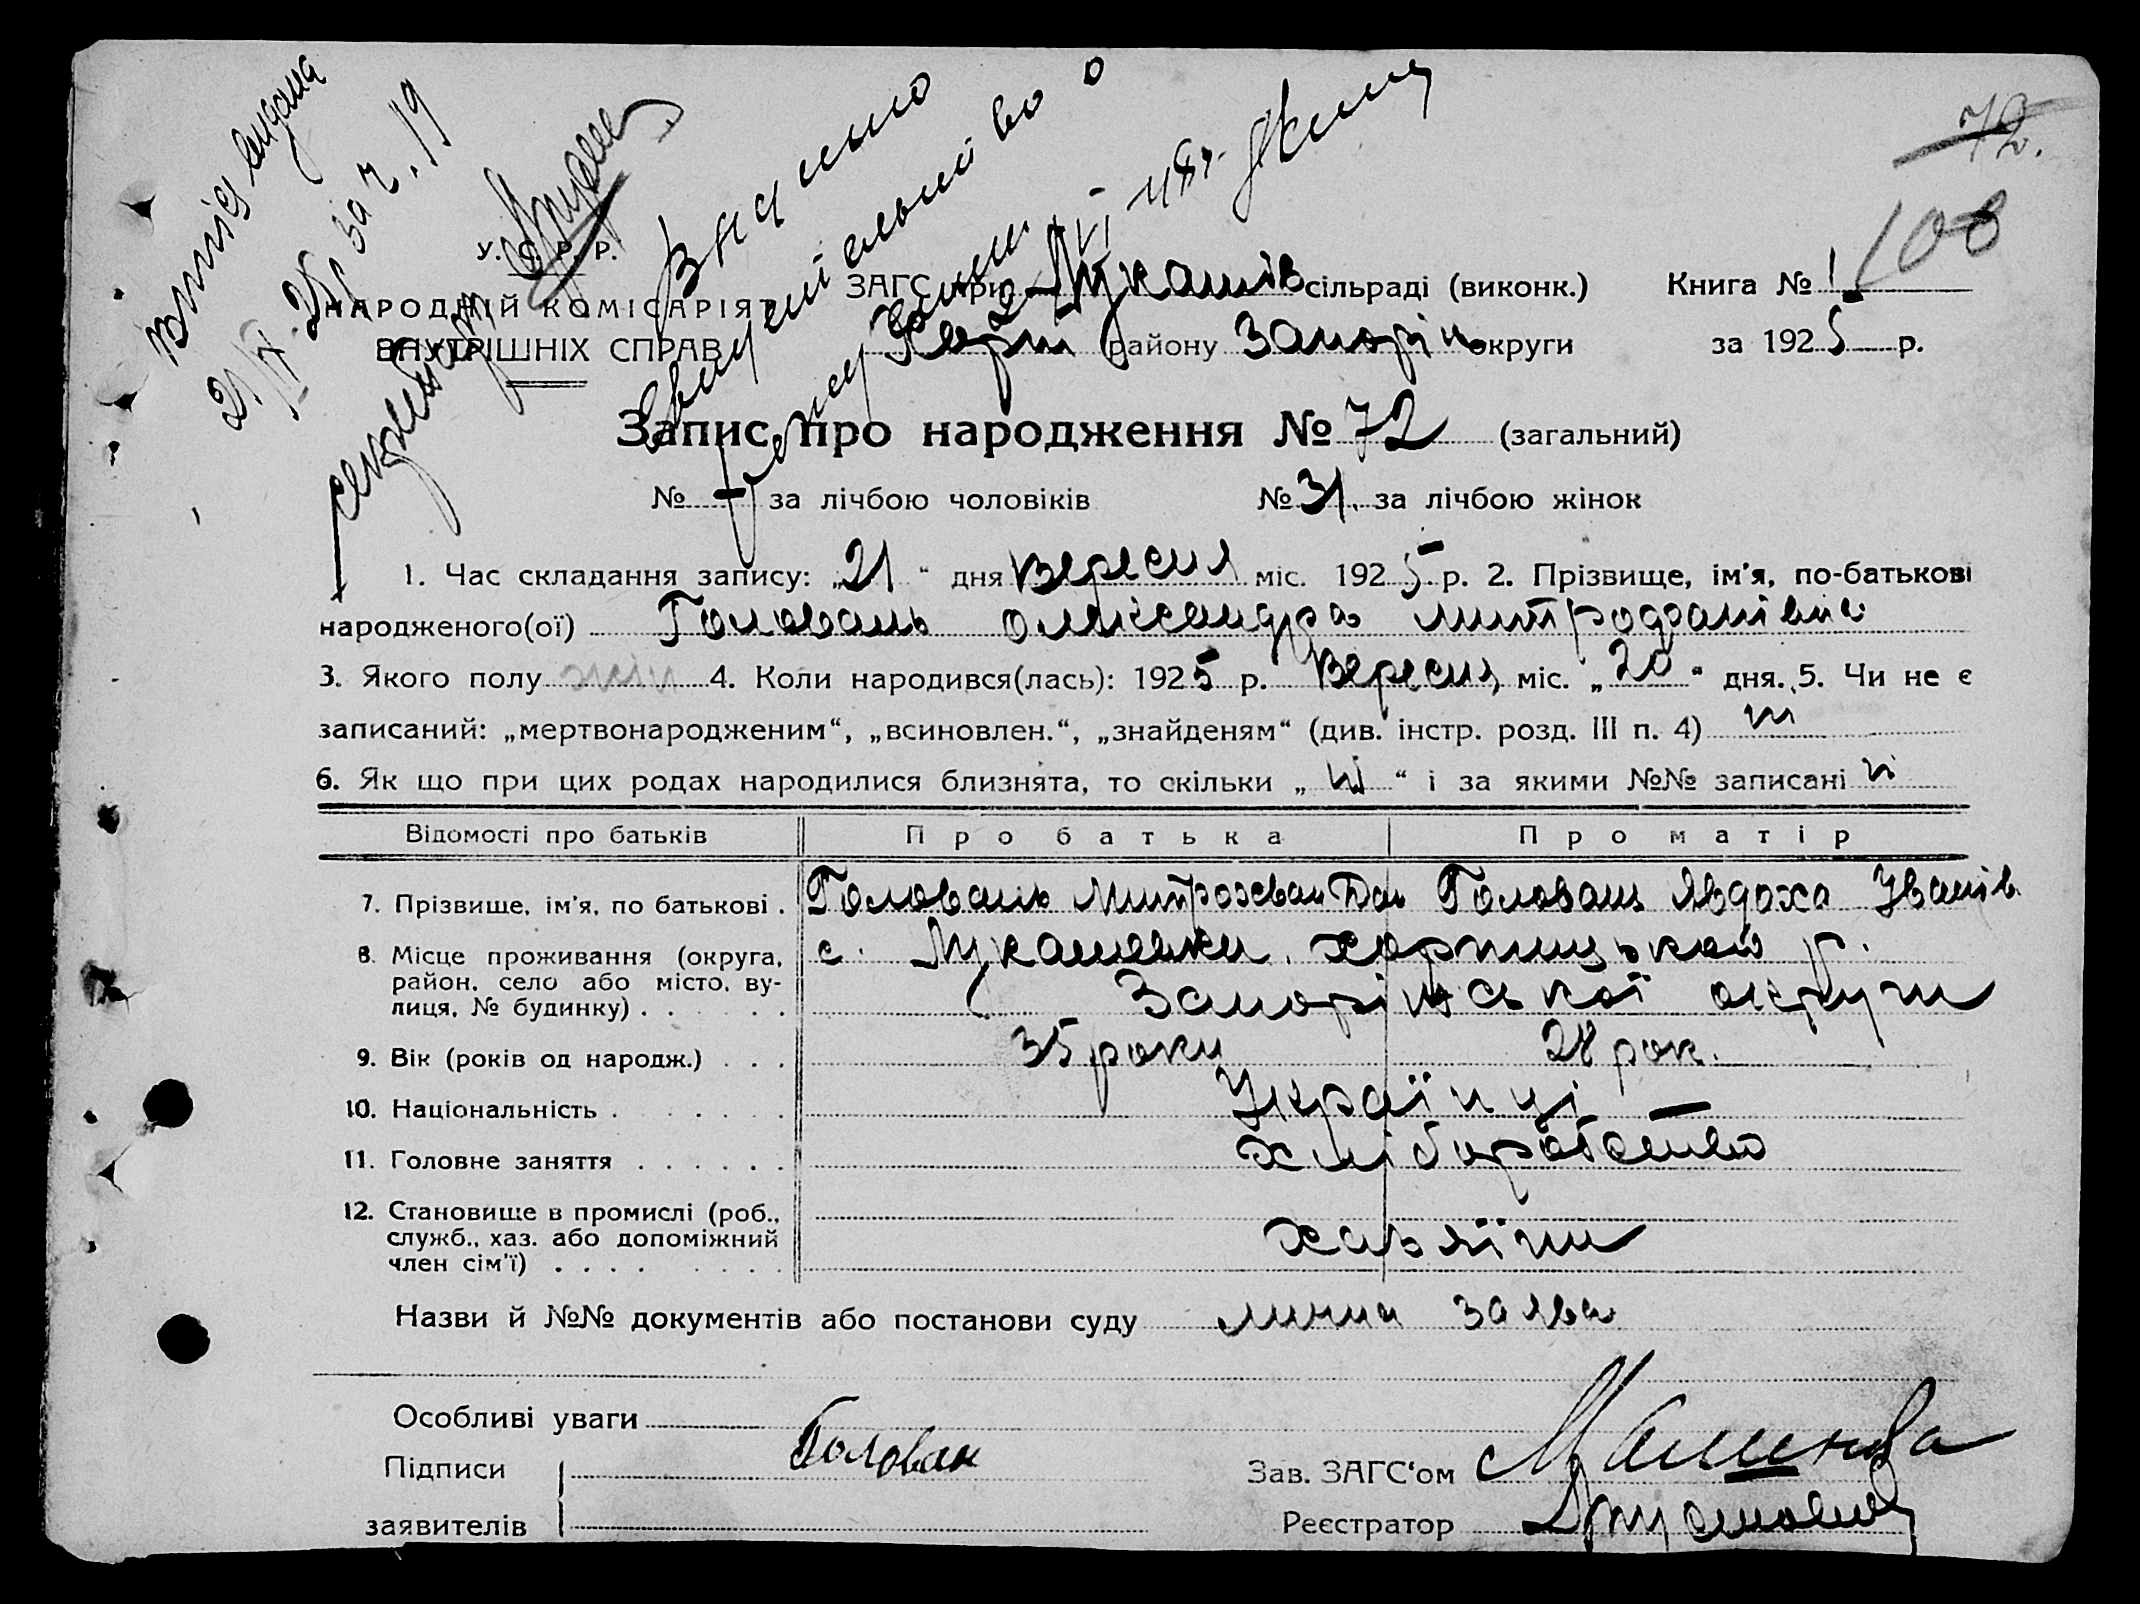 Витяг видана
21/IX-25 р за ч. 19
секретарь
72.
108
У. С. Р. Р.
НАРОДНІЙ КОМІСАРІЯТ
ВНУТРІШНІХ СПРАВ
ЗАГС при Лукашів сільраді (виконк.) Книга № 1
Хорт району Запоріж округи за 1925 р.
Запис про народження № 72 (загальний)
№ – за лічбою чоловіків № 31. за лічбою жінок
1. Час складання запису: „21“ дня Вересня міс. 1925 р. 2. Прізвище, ім'я, по-батькові
народженого(ої) Головань Олександра Митрофанівна
3. Якого полу жін 4. Коли народився(лась): 1925 р. Вересня міс. „20“ дня. 5. Чи не є
записаний: „мертвонародженим“, „всиновлен.“, „знайденям“ (див. інстр. розд. III п. 4) ні
6. Як що при цих родах народилися близнята, то скільки „ні“ і за якими №№ записані ні
Відомості про батьків Про батька Про матір
7. Прізвище, ім'я, по батькові . Головань Митрофан Головань Явдоха Іванів.
8. Місце проживання (округа, район, село або місто, вулиця, № будинку) . . . . . с. Лукашевки. Хортицького р.
Запоріжської округи
9. Вік (років од народж.) . . . 35 роки 28 рок.
10. Національність . . . . . . Українці
11. Головне заняття . . . . . . хліборобство
12. Становище в промислі (роб., служб., хаз. або допоміжний член сім'ї) . . . . . . . . хазяїни
Назви й №№ документів або постанови суду лична заява
Особливі уваги
Підписи заявителів Голован
Зав. ЗАГС'ом
Реєстратор